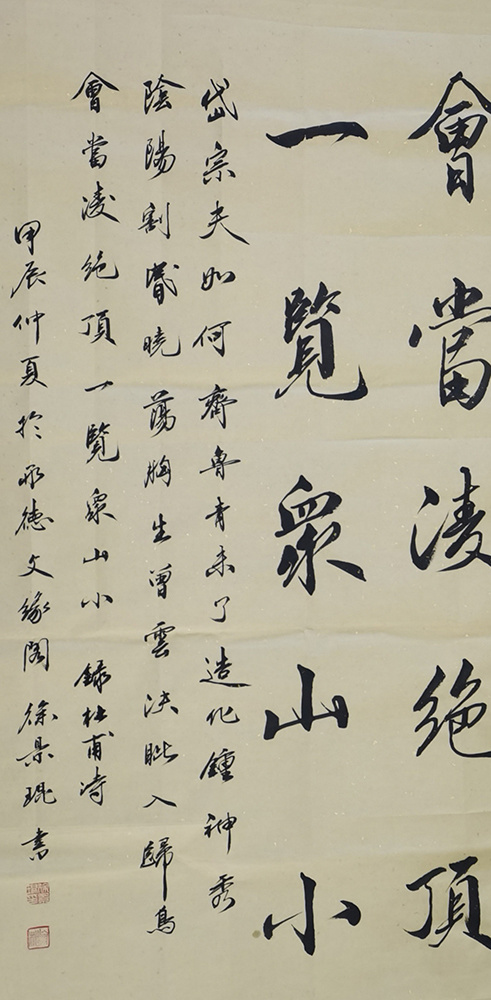 會當凌絕頂
一覽衆山小
岱宗夫如何齊魯青未了造化鍾神秀
陰陽割昏曉蕩胸生曾雲決眦入歸鳥
會當凌絕頂一覽衆山小錄杜甫詩
甲辰仲夏於承德文緣閣徐景琨書